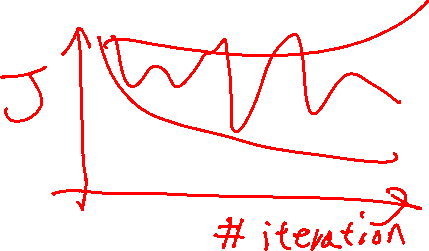 J
# iteration